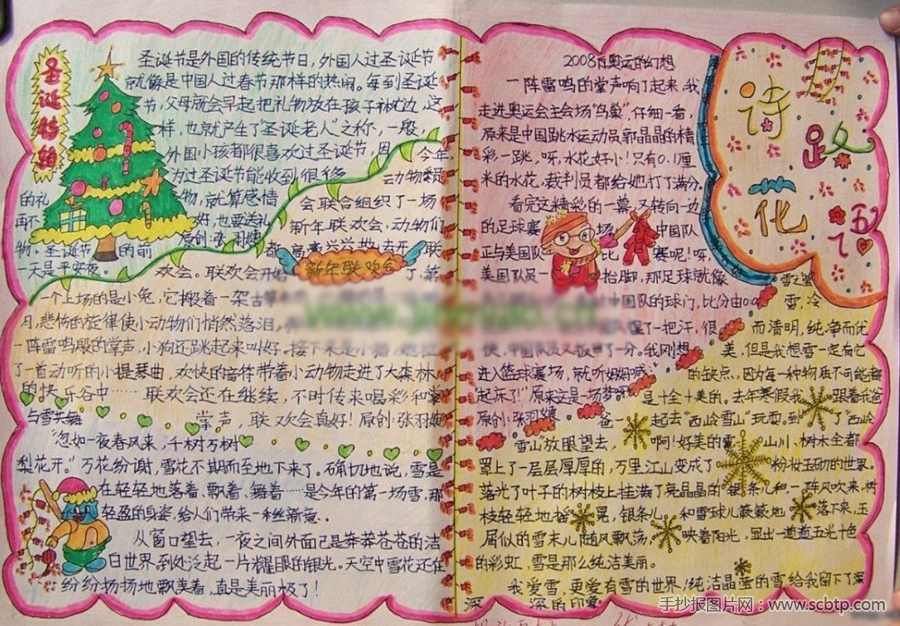 圣诞传说
圣诞节是外国的传统节日，外国人过圣诞节
就像是中国人过春节那样的热闹。每到圣诞
节，父母就会早起把礼物放在孩子枕边，这
样，也就产生了"圣诞老人"之称，一般，
外国小孩都很喜欢过圣诞节，因
为过圣诞节能收到很多
的礼物，就算感情
再不好，也要送礼
物。圣诞节的前
一天是平安夜。
新年联欢会
今年
动物
会联合组织了一场
新年联欢会，动物们
都高高兴兴地去开联
欢会。联欢会开始了，第
一个上场的是小兔，它搬着一架古
月，悲伤的旋律使小动物们悄然落泪，
一阵雷鸣般的掌声，小狗还跳起来叫好，接下来是小猫
了一首动听的小提琴曲，欢快的音符带着小动物走进了大森林
的快乐谷中……联欢会还在继续，不时传来喝彩和掌
掌声，联欢会真好！原创：张羽嫣
与雪共舞
"忽如一夜春风来，千树万树
梨花开。"万花纷谢，雪花不期而至地下来了。确切地说，雪是
在轻轻地落着、飘着、舞着……是今年的第一场雪，那
轻盈的身姿，给人们带来一丝新意。
从窗口望去，一夜之间外面已是莽莽苍苍的洁
白世界，到处泛起一片耀眼的银光。天空中雪花还在
纷纷扬扬地飘美着，真是美丽极了！
2008年奥运的幻想
一阵雷鸣的掌声响了起来，我
走进奥运会主会场"鸟巢"，仔细一看，
原来是中国跳水运动员郭晶晶的精
彩一跳，呀，水花好小！只有0.1厘
米的水花，裁判员都给她打了满分。
看完这精彩的一幕，又转向一边
的足球赛场，中国队
正与美国队比赛呢！呀，
美国队员一抬脚，那足球就像
中国队的球门，比分由0:0
了一把汗，很
快，中国队员又
了一分。我刚想
进入篮球赛场，就听妈妈喊：
起床了！"原来这是一场梦
原创：张羽嫣
诗路花语
雪之
雪，冷
而清明，纯净而优
美，但是我想雪一定有它
的缺点，因为每一种物质不可能都
是十全十美的，去年寒假我跟着我爸
爸一起去"西岭雪山"玩耍，到了"西岭
雪山"放眼望去，啊！好美的雪，山川、树木全都
罩上了一层层厚厚的，万里江山变成了粉妆玉砌的世界。
落光了叶子的树枝上挂满了亮晶晶的"银条儿"，一阵风吹来，树
枝轻轻地摇晃，银条儿和雪球儿簌簌地落下来，玉
屑似的雪末儿随风飘荡，映着阳光，显出一道道五光十色
的彩虹，雪是那么纯洁美丽。
我爱雪，更爱有雪的世界！纯洁晶莹的雪给我留下了深
深深的印象
手抄报图片网：www.scbtp.com